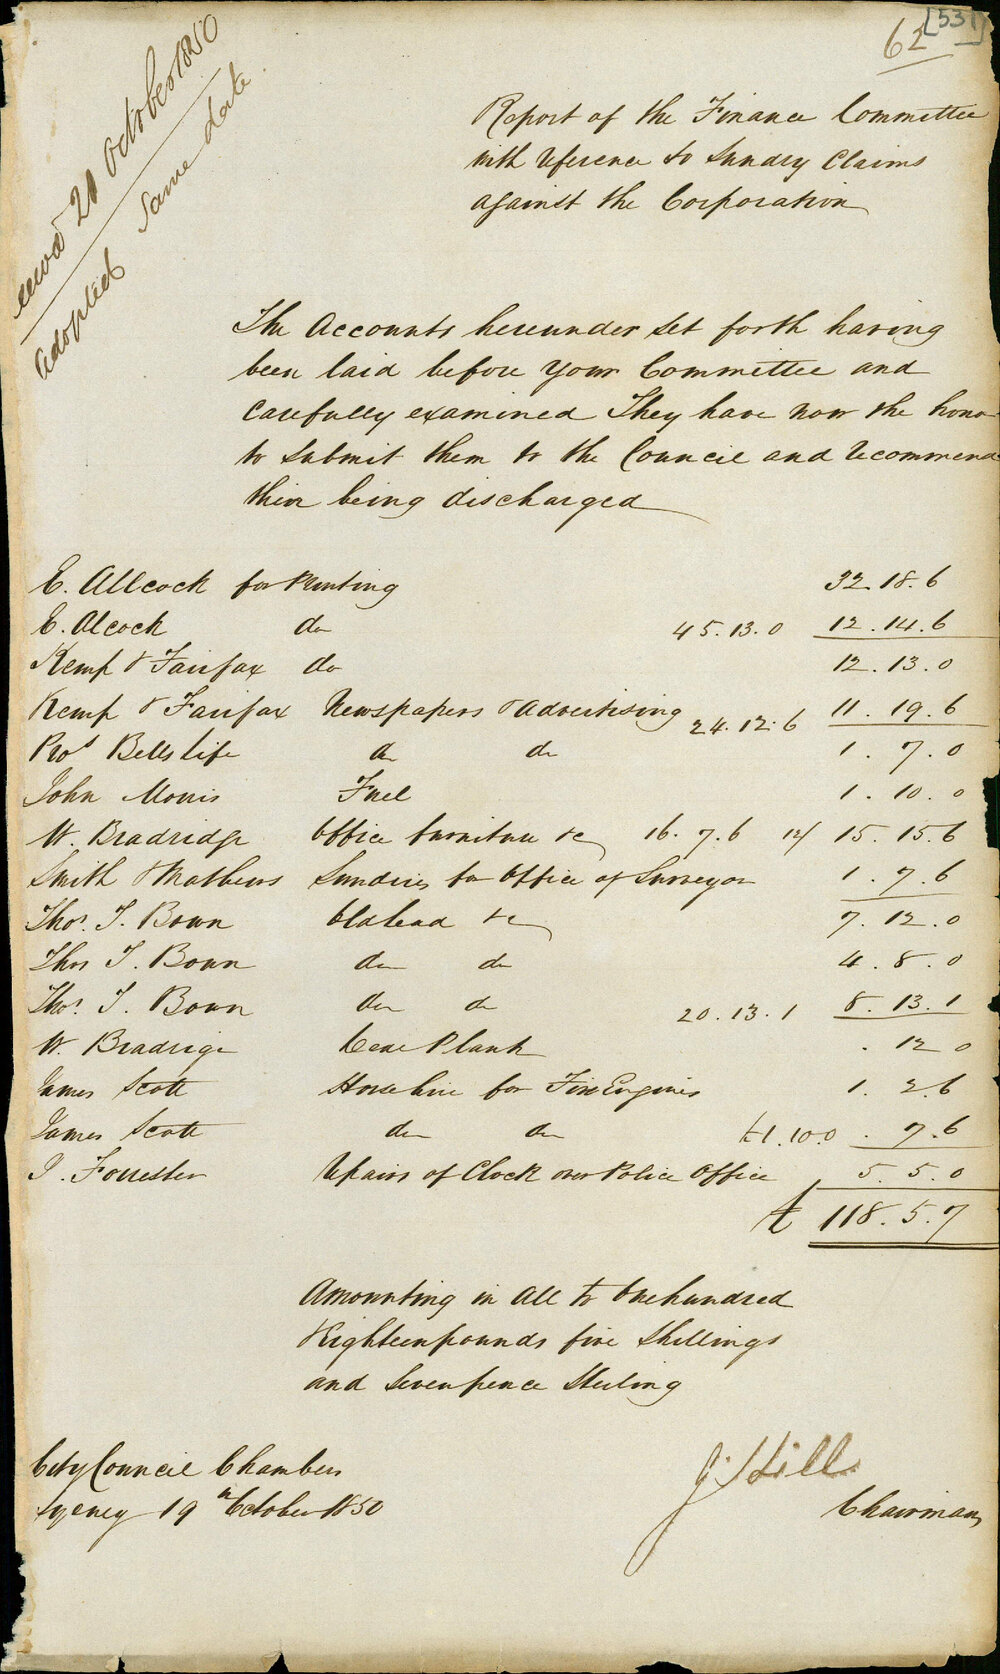 62 [531]
Received 21 October 1850
Adopted Same date
Report of the Finance Committee
with reference to Sundry Claims
against the Corporation
The Accounts hereunder set forth having
been laid before your Committee and
carefully examined They have now the honor
to submit them to the Council and recommend
their being discharged
E. Allcock for Printing 32.18.6
E. Alcock do 45.13.0 12.14.6
Kemp & Fairfax do 12.13.0
Kemp & Fairfax Newspapers & Advertising 24.12.6 11.19.6
Pros Bells Life do do 1.7.0
John Morris Fuel 1.10.0
W. Bradridge Office furniture &c 16.7.6 12/ 15.15.6
Smith & Mathews Sundries for Office of Surveyor 1.7.6
Thos. T. Bown Old lead &c 7.12.0
Thos T. Bown do do 4.8.0
Thos. T. Bown do do 20.13.1 8.13.1
W. Bradrige Plank .12 0
James Scott Horse hire for Fire Engines 1.2.6
James Scott do do £1.10.0 .7.6
J. Forrester Repairs of Clock over Police Office 5.5.0
£ 118.5.7
Amounting in all to One hundred
& Eighteen pounds five Shillings
and Seven pence Sterling
City Council Chambers
Sydney 19th October 1850
J. Hill
Chairman